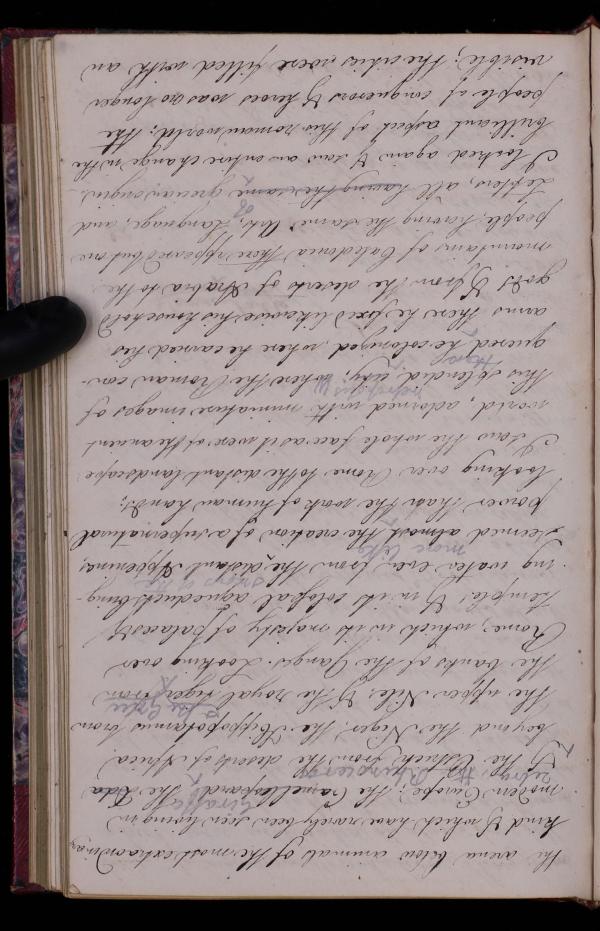 the arena below animals of the most extraordinary
kind & which have rarely been seen living in
Giraffe
modern Europe; the Cameleopard, the
Zebra, the Rhinoceros
& the Ostrich from the deserts of Africa
beyond the Niger, the Hippopotamus from
the upper Nile, & the royal tiger from
the banks of the Ganges. Looking over
Rome, which in its majesty of palaces &
temples & in its colossal aqueducts bring-
snows of the
ing water even from the distant Appenines,
more like
seemed almost the creation of a supernatural
power than the work of human hands;
looking over Rome to the distant landscape
I saw the whole face as it were of the ancient
world, adorned with miniature images of
metropolis W
this splendid city; where the Roman con-
quered he colonized, where he carried his
arms there he fixed likewise his household
gods & from the deserts of Arabia to the
mountains of Caledonia there appeared but one
people, having the same Arts, language, and
of
Letters, all having the same grecian origin.
I looked again & saw an entire change in the
brilliant aspect of this roman world; the
people of conquerors & heroes was no longer
visible; the cities were filled with an